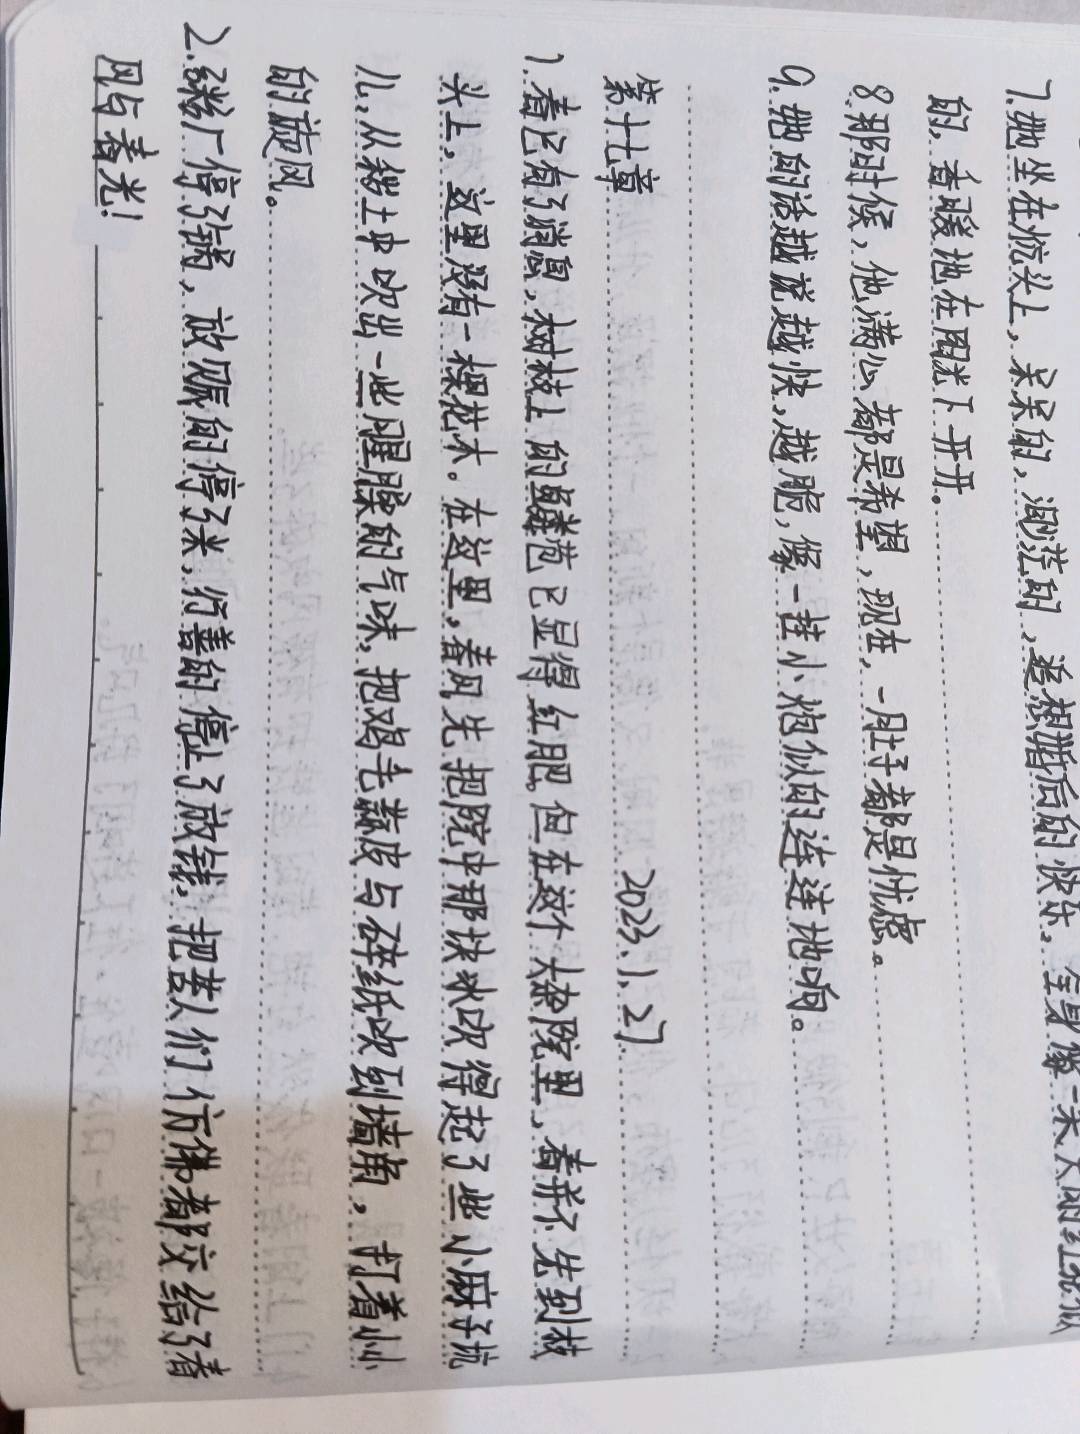 7.她坐在炕头上,呆呆的,渺茫的,追想婚后的快乐。全身像一朵大的红花似
的,香暖地在阳光下开开。
8.那时候,他满心都是希望,现在,一肚子都是忧虑。
9.她的话越说越快,越脆,像一挂小炮似的连连地响。
第十七章 2023.1.27
1.春已有了消息,树枝上的鳞苞已显得红肥。但在这个大杂院里,春并不先到枝
头上,这里没有一棵花木。在这里,春风先把院中那块冰吹得起了些小麻子坑
儿,从秽土中吹出一些腥臊的气味,把鸡毛蒜皮与碎纸吹到墙角,打着小小
的旋风。
2.粥厂停了锅,放赈的停了米,行善的停止了放钱。把苦人们仿佛都交给了春
风与春光!